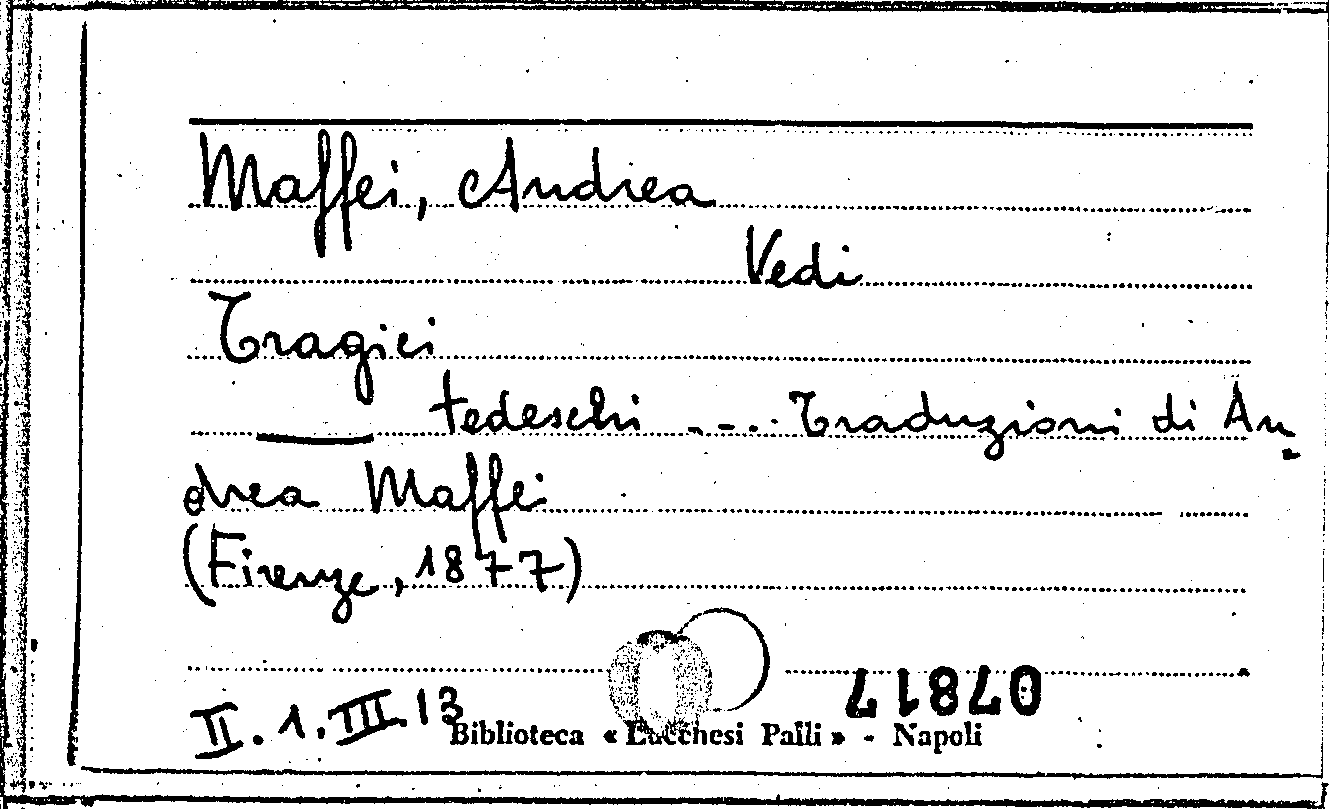 Maffei, Andrea
Vedi
Tragici
tedeschi .... Traduzioni di An=
drea Maffei
(Firenze, 1877)
07817
II. 1. III. 13
Biblioteca « Lucchesi Palli » - Napoli